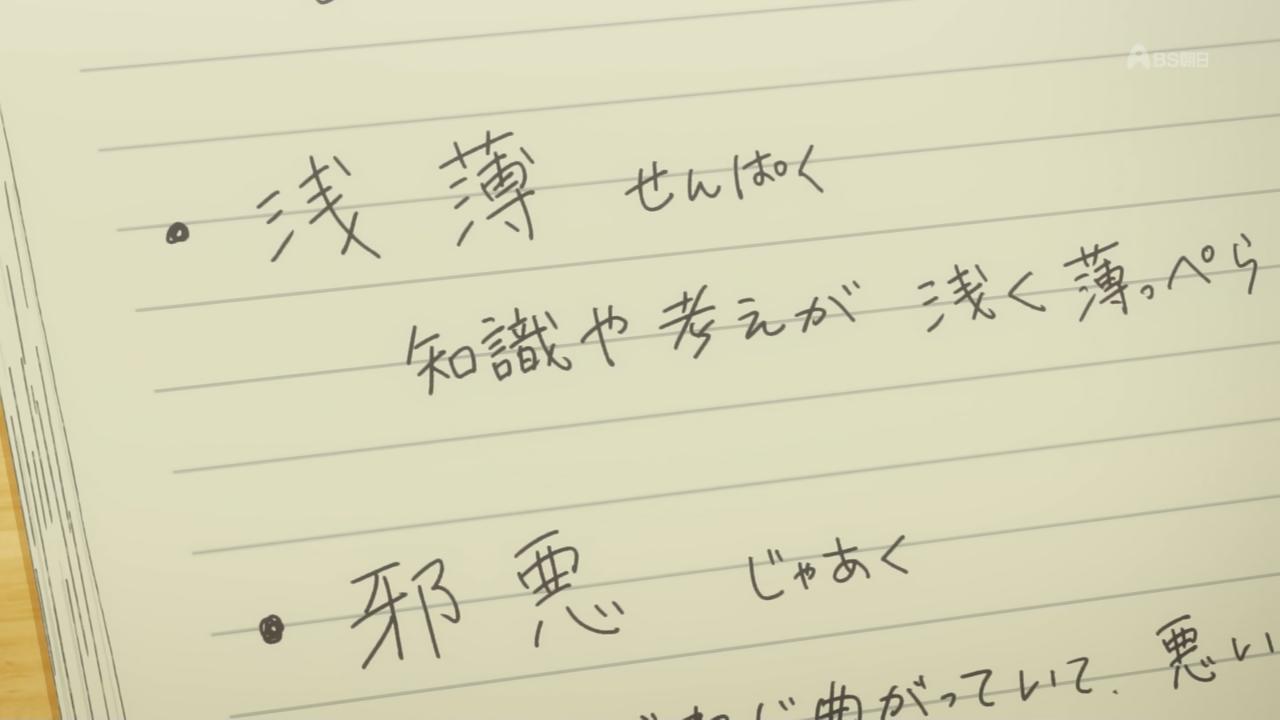 BS朝日
・浅薄 せんぱく
知識や考えが 浅く薄っぺら
・邪悪 じゃあく
ねじ曲がっていて、悪い